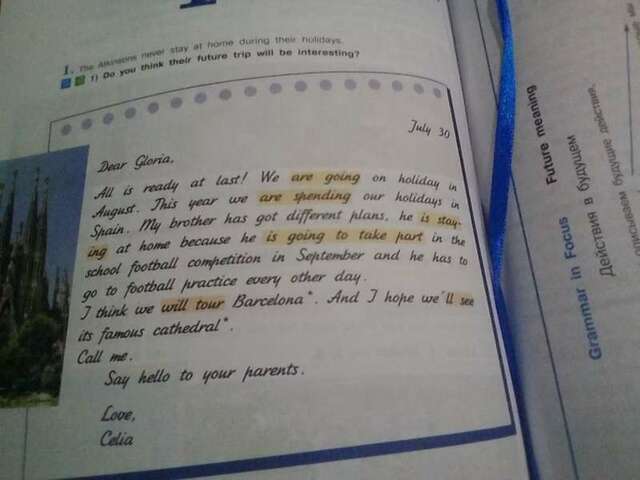 1. The Atkinsons never stay at home during their holidays.
1) Do you think their future trip will be interesting?
July 30
Dear Gloria,
All is ready at last! We are going on holiday in
August. This year we are spending our holidays in
Spain. My brother has got different plans, he is stay-
ing at home because he is going to take part in the
school football competition in September and he has to
go to football practice every other day.
I think we will tour Barcelona*. And I hope we'll see
its famous cathedral*.
Call me.
Say hello to your parents.
Love,
Celia
Grammar in Focus
Future meaning
Действия в будущем
описываем будущие действия,